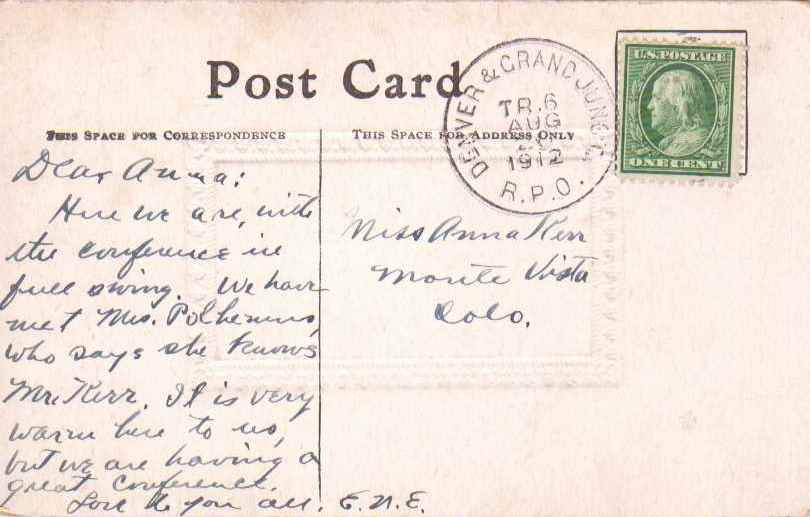 Post Card
THIS SPACE FOR CORRESPONDENCE
THIS SPACE FOR ADDRESS ONLY
DENVER & GRAND JUNCT.
TR. 6
AUG
1912
R.P.O.
U.S. POSTAGE
ONE CENT
Dear Anna:
Here we are, with
the conference in
full swing. We have
met Mrs. Polhemus,
who says she knows
Mr. Kerr. It is very
warm here to us,
but we are having a
great conference.
Love to you all. E.N.E.
Miss Anna Kerr
Monte Vista
Colo.